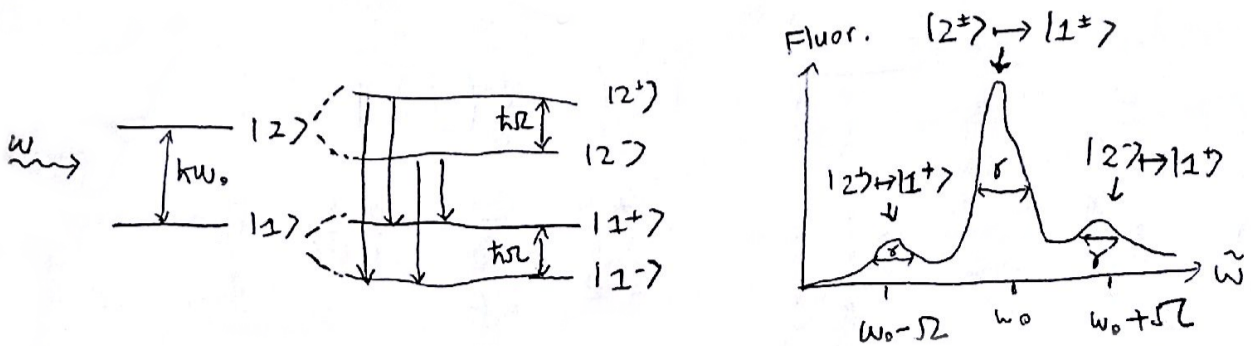 ω
|2⟩
ħω₀
|1⟩
|2⁺⟩
ħΩ
|2⁻⟩
|1⁺⟩
ħΩ
|1⁻⟩
Fluor.
|2^±⟩ ↦ |1^±⟩
|2⁺⟩↦|1⁺⟩
γ
|2⁻⟩↦|1⁺⟩
γ
γ
ω₀-Ω
ω₀
ω₀+Ω
ω̃